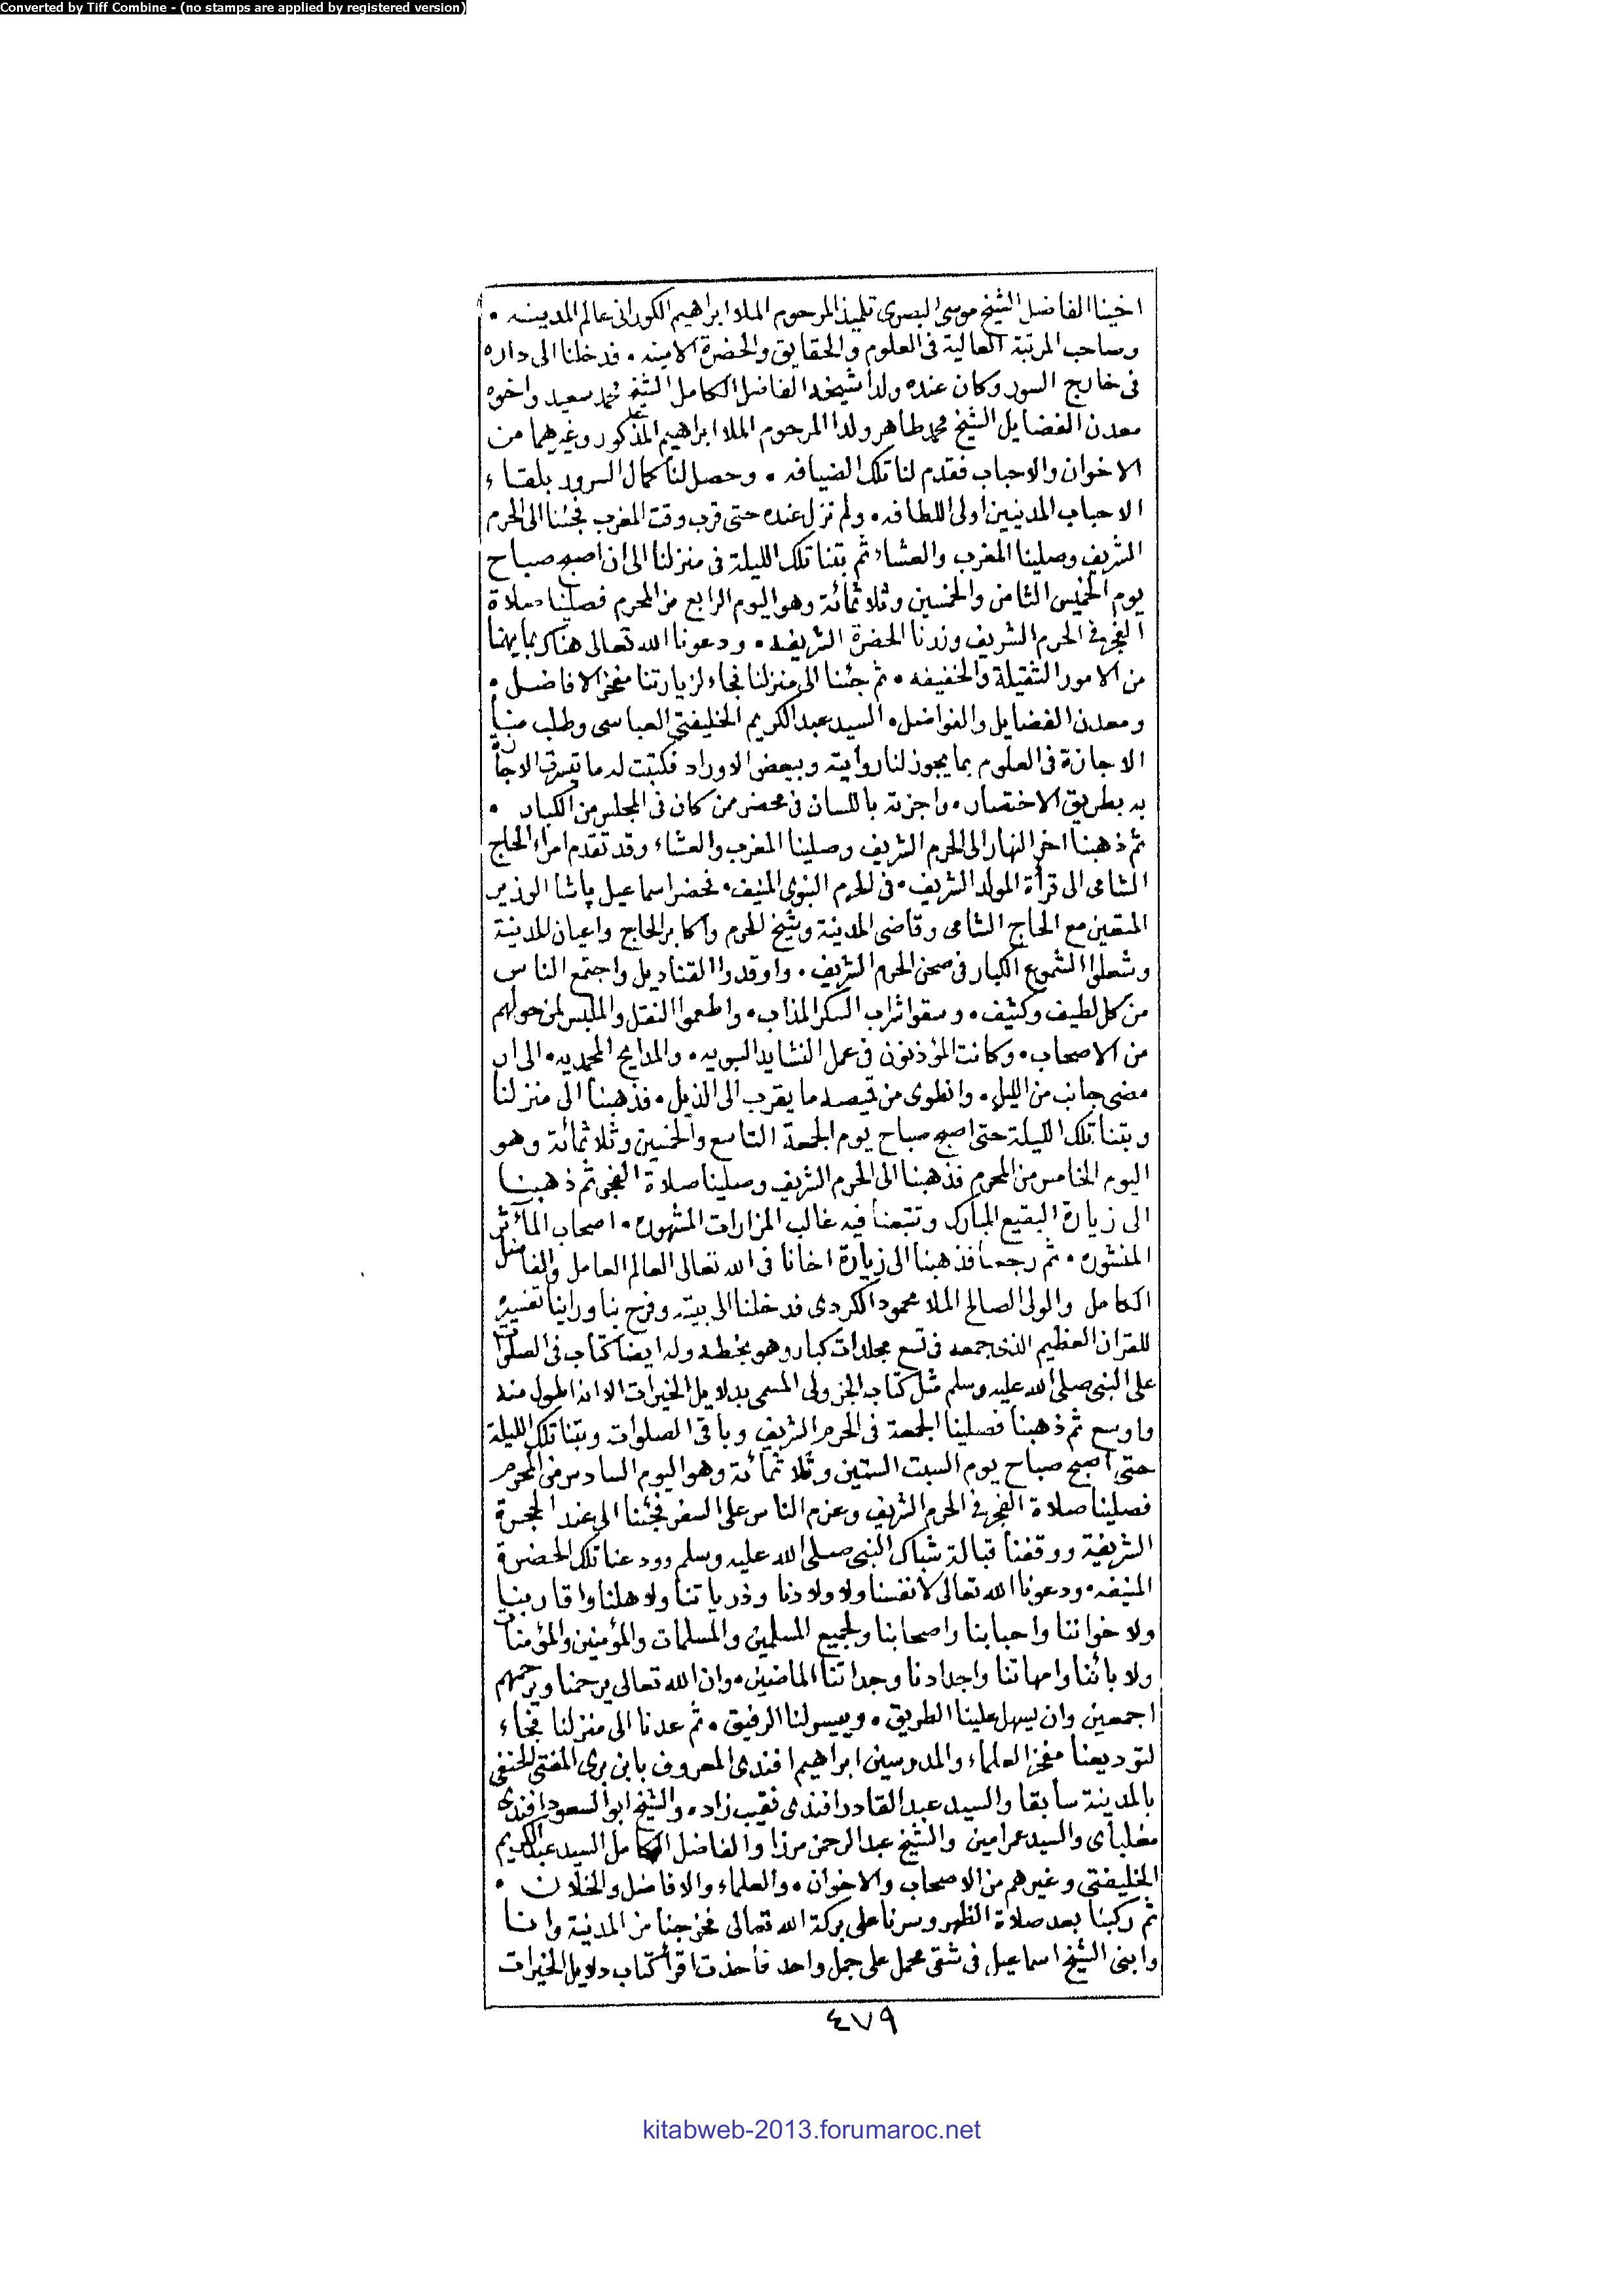 Converted by Tiff Combine - (no stamps are applied by registered version)
اخينا الفاضل الشيخ موسى البصرى تلميذ المرحوم الملا ابراهيم الكورانى عالم المدينه •
وصاحب المرتبة العالية فى العلوم والحقايق والحضرة الامينه • فدخلنا الى داره
فى خارج السور وكان عنده ولدا شيخه الفاضل الكامل الشيخ محمد سعيد واخوه
معدن الفضايل الشيخ محمد طاهر ولدا المرحوم الملا ابراهيم المذكور وغيرهما من
الاخوان والاحباب فقدم لنا تلك الضيافه • وحصل لنا كمال السرور بلقاء
الاحباب المدنيين اولى اللطافه • ولم نزل عنده حتى قرب وقت المغرب فجئنا الى الحرم
الشريف وصلينا المغرب والعشاء ثم بتنا تلك الليلة فى منزلنا الى ان اصبح صباح
يوم الخميس الثامن والخمسين وثلاثمائة وهو اليوم الرابع من المحرم فصلينا صلاة
الفجر فى الحرم الشريف وزرنا الحضرة الشريفه • ودعونا الله تعالى هناك بما يهمنا
من الامور الثقيلة والخفيفه • ثم جئنا الى منزلنا فجاء لزيارتنا مفخر الافاضل •
ومعدن الفضايل والفواضل • السيد عبد الكريم الخليفتى العباسى وطلب منا
الاجازة فى العلوم بما يجوز لنا روايته وببعض الاوراد فكتبت له ما تيسرت الاجازة
به بطريق الاختصار • واجزته باللسان فى محضر من كان فى المجلس من الكبار •
ثم ذهبنا اخر النهار الى الحرم الشريف وصلينا المغرب والعشاء وقد تقدم امراء الحاج
الشامى الى قرأة المولد الشريف • فى الحرم النبوى المنيف • فحضر اسماعيل پاشا الوزير
المتعين مع الحاج الشامى وقاضى المدينة وشيخ الحرم واكابر الحاج واعيان المدينة
وشعلوا الشموع الكبار فى صحن الحرم الشريف • واوقدوا القناديل واجتمع الناس
من كل لطيف وكثيف • وسقوا شراب السكر المذاب • واطعموا النقل والملبس لمن حولهم
من الاصحاب • وكانت المؤذنون فى عمل النشايد النبويه • والمدايح المحمديه • الى ان
مضى جانب من الليل • وانطوى من قميصه ما يقرب الى الذيل • فذهبنا الى منزلنا
وبتنا تلك الليلة حتى اصبح صباح يوم الجمعة التاسع والخمسين وثلاثمائة وهو
اليوم الخامس من المحرم فذهبنا الى الحرم الشريف وصلينا صلاة الفجر ثم ذهبنا
الى زيارة البقيع المبارك وتتبعنا فيه غالب المزارات المشهوره • اصحاب المآثر
المنثوره • ثم رجعنا فذهبنا الى زيارة اخانا فى الله تعالى العالم العامل والفاضل
الكامل والولى الصالح الملا محمود الكردى فدخلنا الى بيته وفرح بنا وراينا تفسيره
للقران العظيم الذى جمعه فى تسع مجلدات كبار وهو بخطه وله ايضا كتاب فى الصلوات
على النبى صلى الله عليه وسلم مثل كتاب الجزولى المسمى بدلايل الخيرات الا انه اطول منه
واوسع ثم ذهبنا فصلينا الجمعة فى الحرم الشريف وباقى الصلوات وبتنا تلك الليلة
حتى اصبح صباح يوم السبت الستين وثلاثمائة وهو اليوم السادس من المحرم
فصلينا صلاة الفجر فى الحرم الشريف وعزم الناس على السفر فجئنا الى عند الحجرة
الشريفة ووقفنا قبالة شباك النبى صلى الله عليه وسلم وودعنا تلك الحضرة
المنيفه • ودعونا الله تعالى لانفسنا ولاولادنا وذرياتنا ولاهلنا واقاربنا
ولاخواننا واحبابنا واصحابنا ولجميع المسلمين والمسلمات والمؤمنين والمؤمنات
ولابائنا وامهاتنا واجدادنا وجداتنا الماضين • وان الله تعالى يرحمنا ويرحمهم
اجمعين وان يسهل علينا الطريق • وييسر لنا الرفيق • ثم عدنا الى منزلنا فجاء
لتوديعنا مفخر العلماء والمدرسين ابراهيم افندى المعروف بابن برى المفتى الحنفى
بالمدينة سابقا والسيد عبد القادر افندى نقيب زاده والشيخ ابو السعود افندى
مغلباى والسيد عمر امين والشيخ عبد الرحمن مرزا والفاضل الكامل السيد عبد الكريم
الخليفتى وغيرهم من الاصحاب والاخوان • والعلماء والافاضل والخلان •
ثم ركبنا بعد صلاة الظهر وسرنا على بركة الله تعالى فخرجنا من المدينة وانا
وابنى الشيخ اسماعيل فى شقى محمل على جمل واحد فأخذت اقرأ كتاب دلايل الخيرات
٤٧٩
kitabweb-2013.forumaroc.net